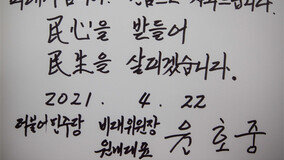 民心을 받들어
民生을 살피겠습니다.
2021. 4. 22
더불어민주당 비대위원장
원내대표 윤호중